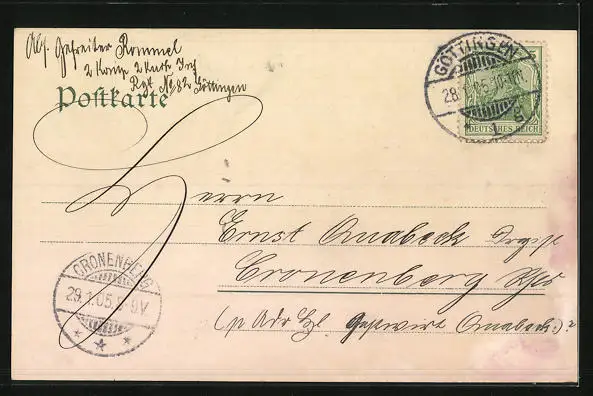 Abs. Gefreiter Rommel
2 Komp 2 Kurh. Inf
Rgt No 82 Göttingen
Postkarte
GÖTTINGEN
28.1.05.
1
DEUTSCHES REICH
Herrn
Ernst Quabeck
Cronenberg
(p Adr Gastwirt Quabeck.)
CRONENBERG
29.1.05.8-9V